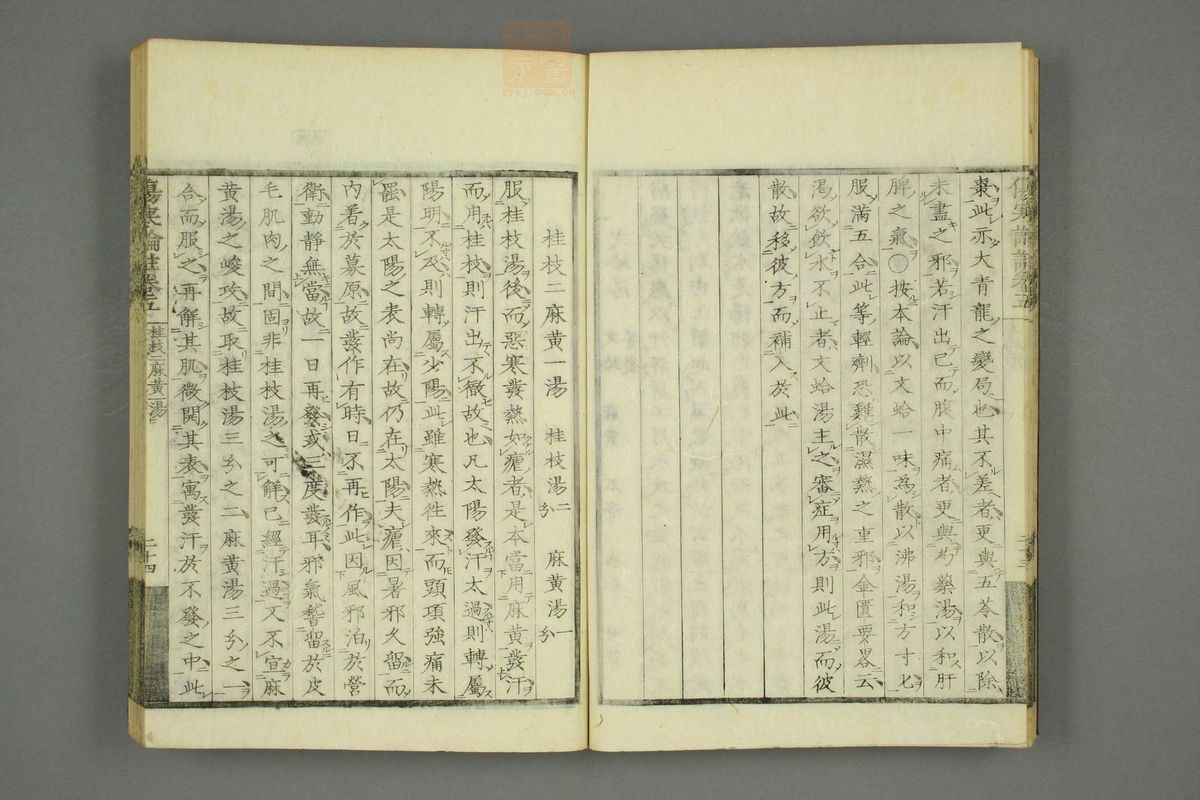 棗此亦大青龍之變局也其不差者更與五苓散以除
未盡之邪若汗出已而腹中痛者更與芍藥湯以和肝
脾之氣○按本論以文蛤一味為散以沸湯和方寸匕
服滿五合此等輕劑恐難散濕熱之重邪金匱要畧云
渴欲飲水不止者文蛤湯主之審症用方則此湯而彼
散故移彼方而補入於此
桂枝二麻黄一湯 桂枝湯二分 麻黄湯一分
服桂枝湯後而惡寒發熱如瘧者是本當用麻黄發汗
而用桂枝則汗出不徹故也凡太陽發汗太過則轉屬
陽明不及則轉屬少陽此雖寒熱徃來而頸項強痛未
罷是太陽之表尚在故仍在太陽夫瘧因暑邪久留而
内着於募原故發作有時日不再作此因風邪泊於營
衛動靜無當故一日再發或三度發耳邪氣稽留於皮
毛肌肉之間固非桂枝湯之可解已經汗過又不宜麻
黄湯之峻攻故取桂枝湯三分之二麻黄湯三分之一
合而服之再解其肌微開其表寓發汗於不發之中此
傷寒論註卷五 桂枝二麻黄一湯 二十四